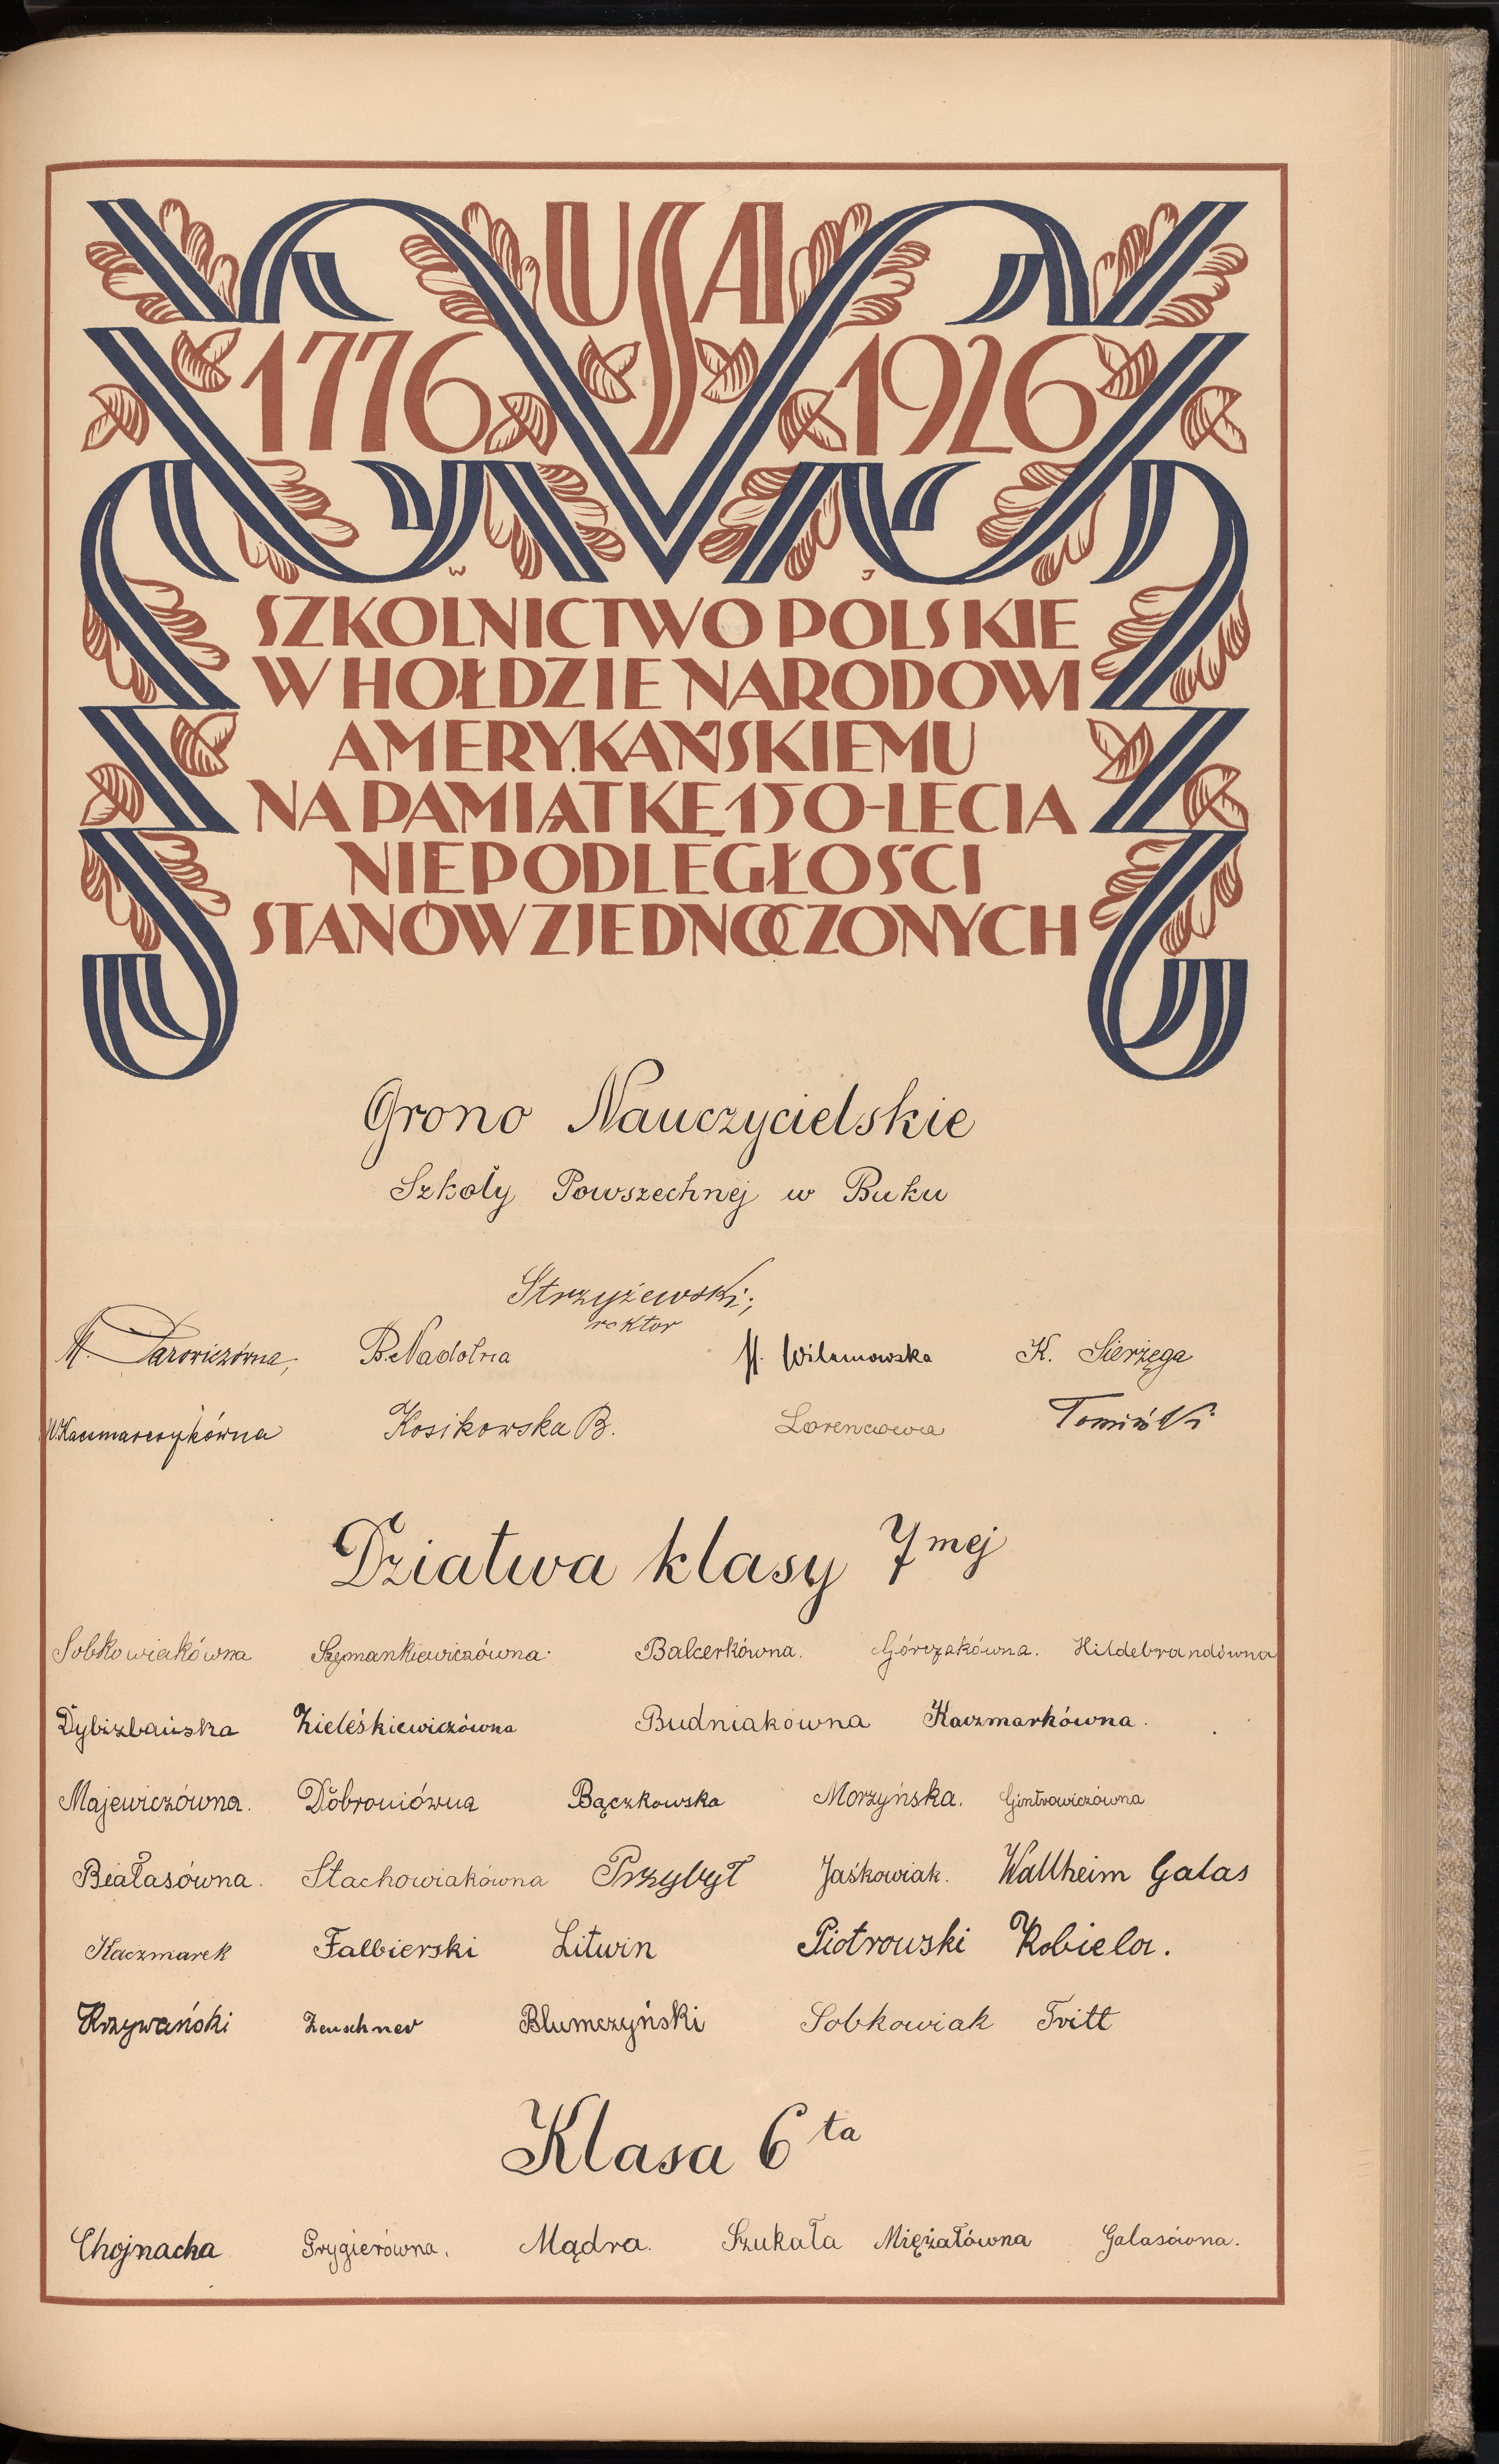 USA
1776 1926
W J
SZKOLNICTWO POLSKIE
W HOŁDZIE NARODOWI
AMERYKAŃSKIEMU
NA PAMIĄTKĘ 150-LECIA
NIEPODLEGŁOŚCI
STANÓW ZJEDNOCZONYCH
Grono Nauczycielskie
Szkoły Powszechnej w Buku
Strzyżewski;
rektor
B. Nadolna H. Wilamowska K. Sierżęga
W. Kaczmarczykówna Kosikowska B. Lorencowa Tomiński
Dziatwa klasy 7mej
Sobkowiakówna Szymankiewiczówna. Balcerkówna. Górczakówna. Hildebrandówna
Dybizbańska Zieleśkiewiczówna Budniakówna Kaczmarkówna.
Majewiczówna. Dobroniówna Bączkowska Morzyńska. Gintrowiczówna
Białasówna. Stachowiakówna Przybył Jaśkowiak. Wallheim Galas
Kaczmarek Falbierski Litwin Piotrowski Kobiela.
Krzywański Zeuschner Blumczyński Sobkowiak Tritt
Klasa 6ta
Chojnacka Grygierówna. Mądra. Szukała Miężałówna Galasówna.